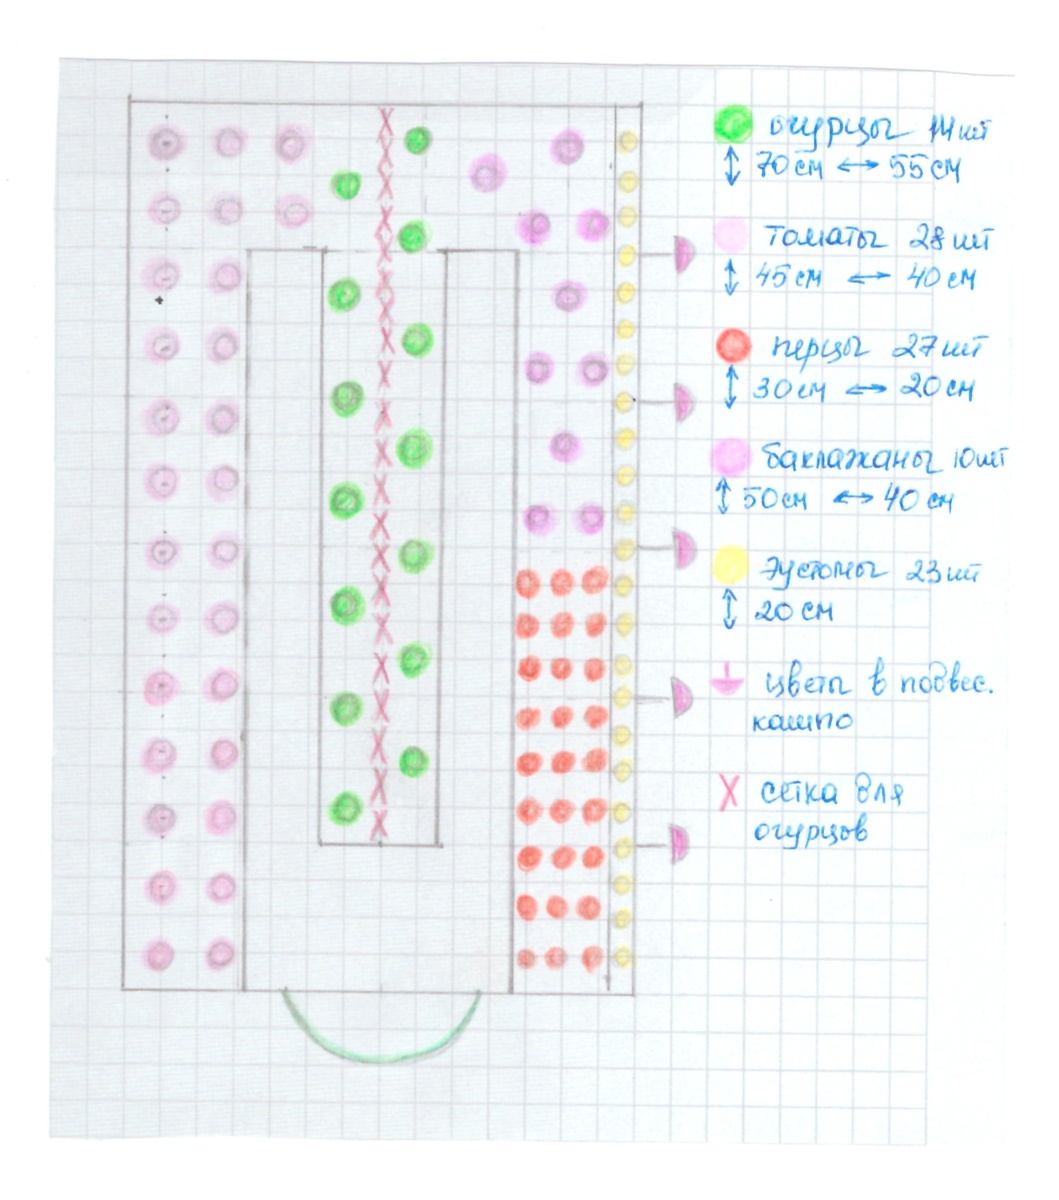 огурцы 14 шт
↕ 70 см ↔ 55 см
томаты 28 шт
↕ 45 см ↔ 40 см
перцы 27 шт
↕ 30 см ↔ 20 см
баклажаны 10 шт
↕ 50 см ↔ 40 см
Эустомы 23 шт
↕ 20 см
цветы в подвес.
кашпо
сетка для
огурцов